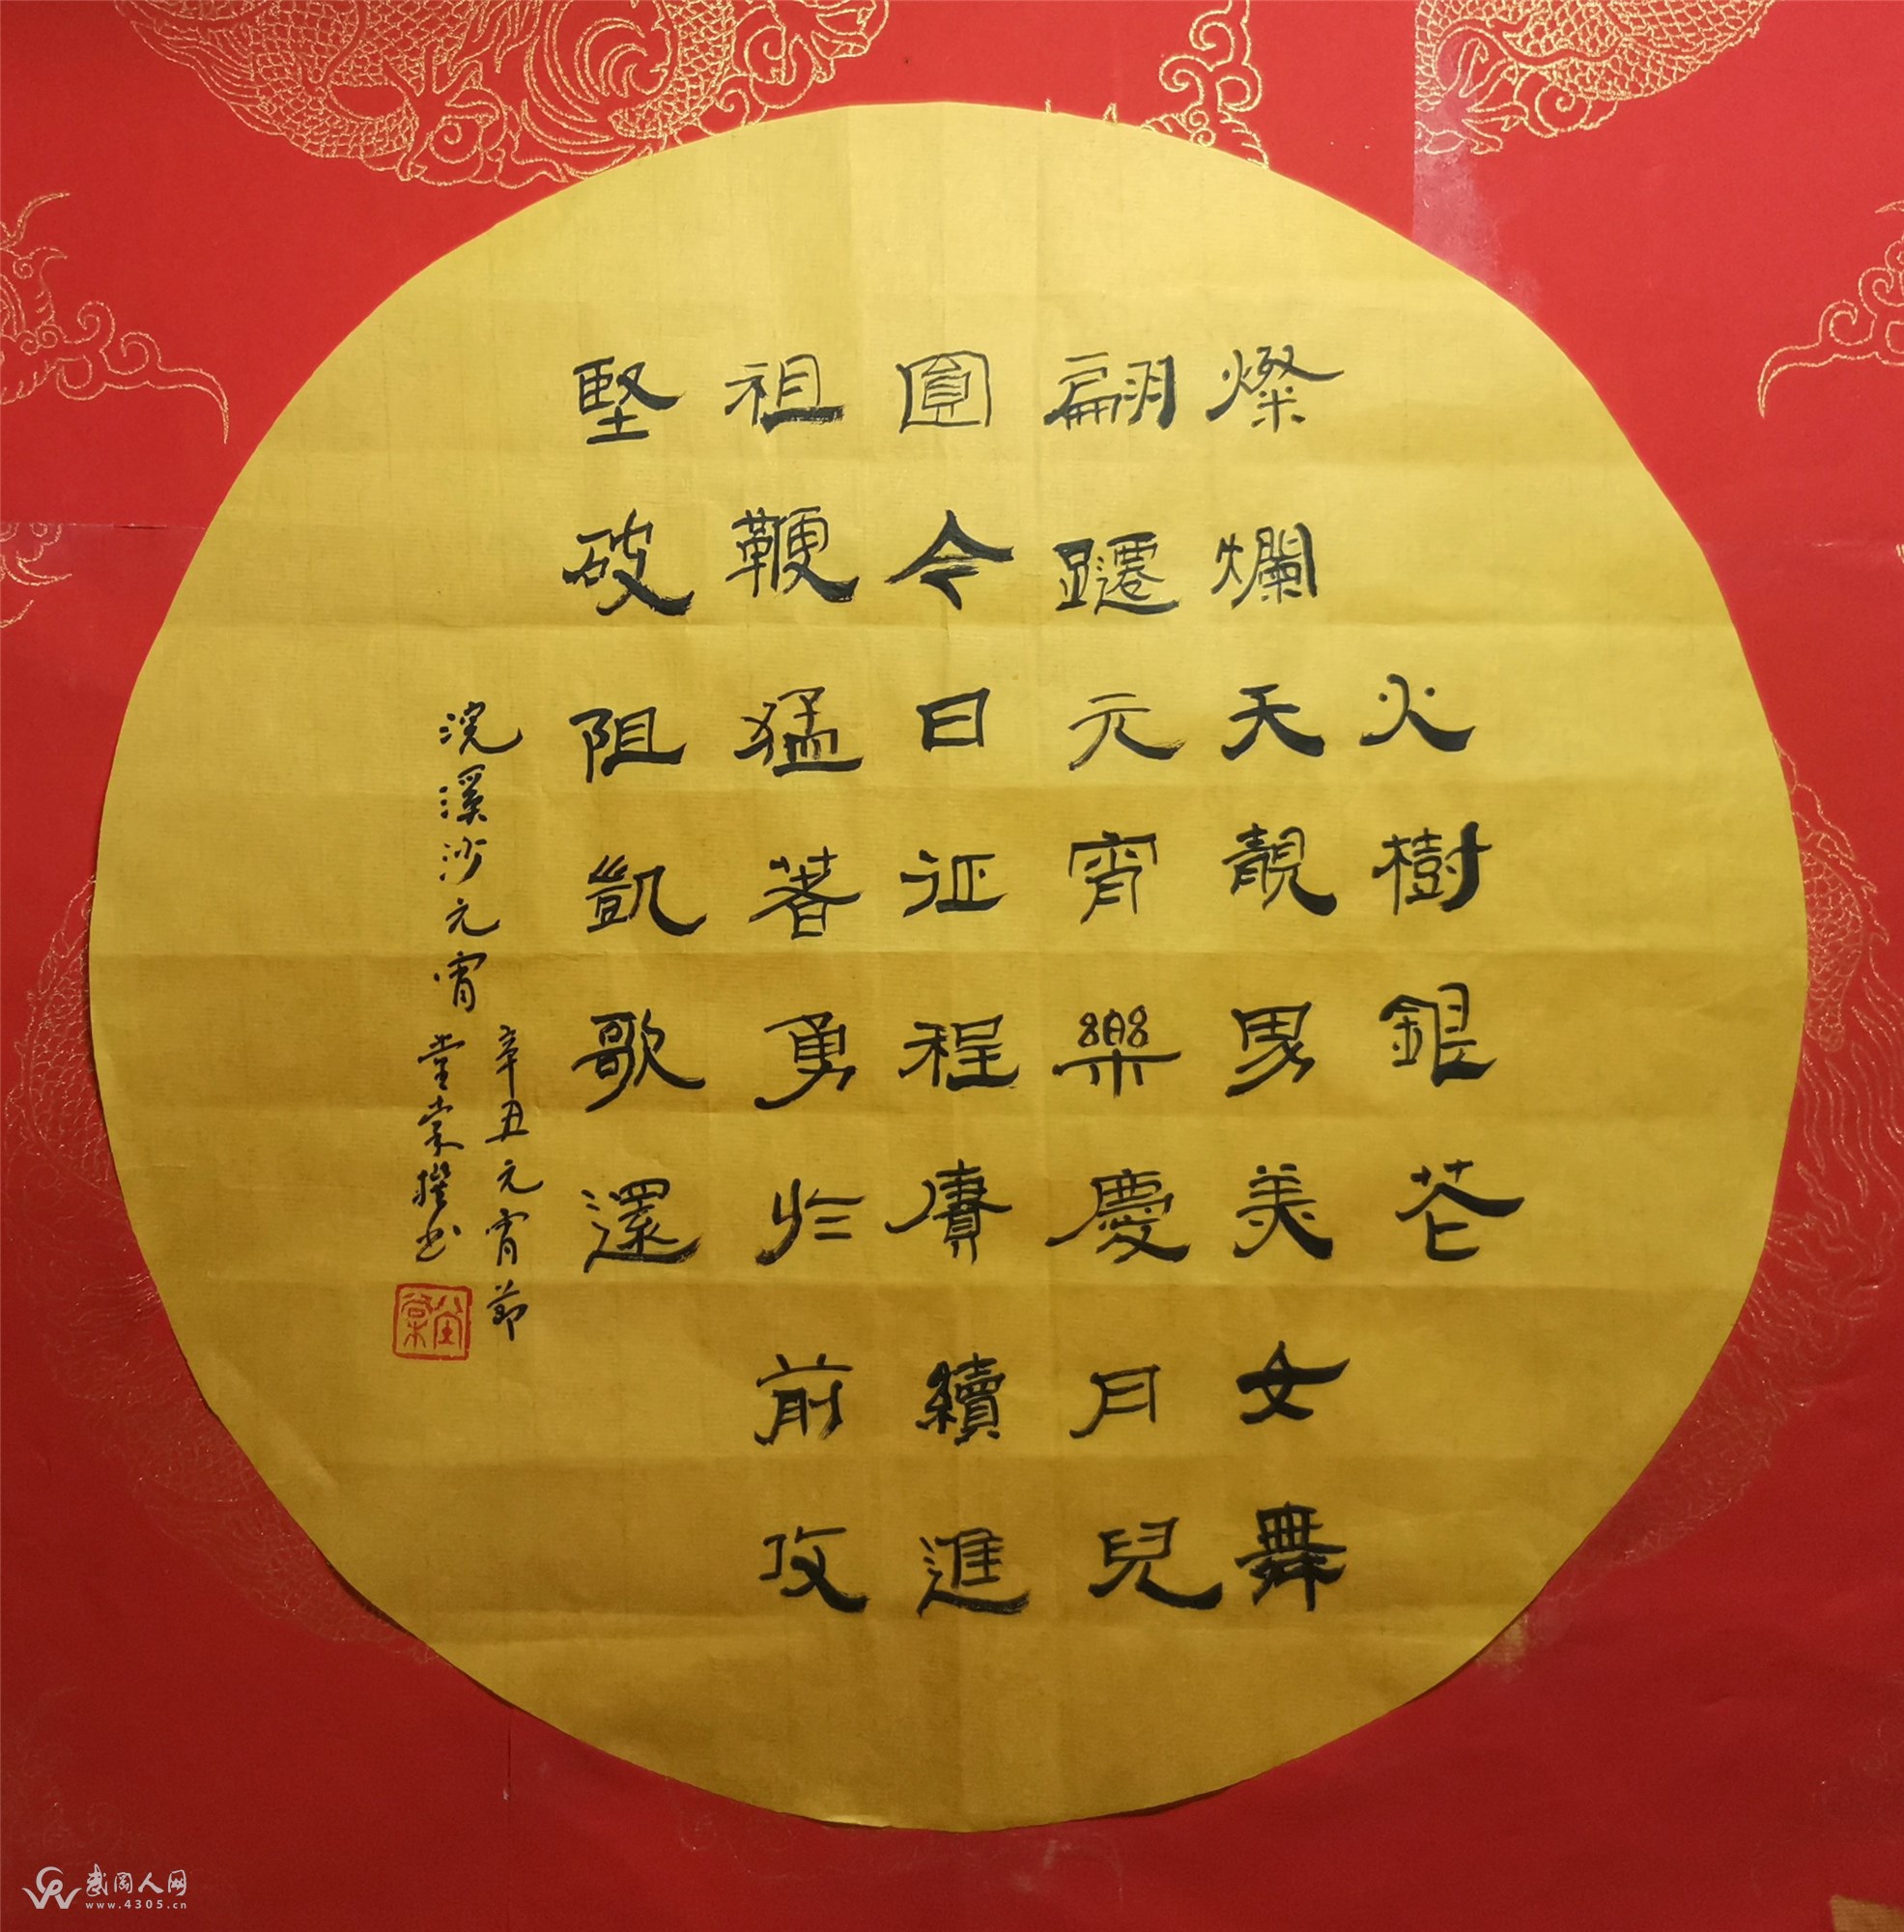 火樹銀花
燦爛天靚男美女舞
翩躚元宵樂慶月兒
圓今日征程賡續進
祖鞭猛著勇於前攻
堅破阻凱歌還
浣溪沙元宵
辛丑元宵節
堂棠撰书
武岡人网
www.4305.cn